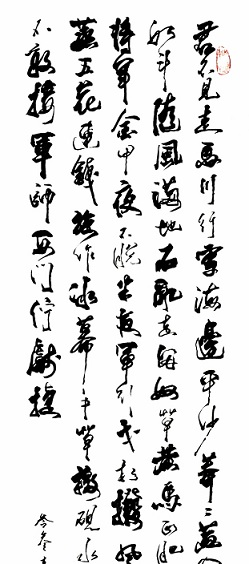 君不見走馬川行雪海邊平沙莽々黃
如斗隨風滿地石亂走匈奴草黃馬正肥
將軍金甲夜不脫半夜軍行戈相撥風
蒸五花連錢旋作冰幕中草檄硯水
不敢接軍師西門佇獻捷
岑參